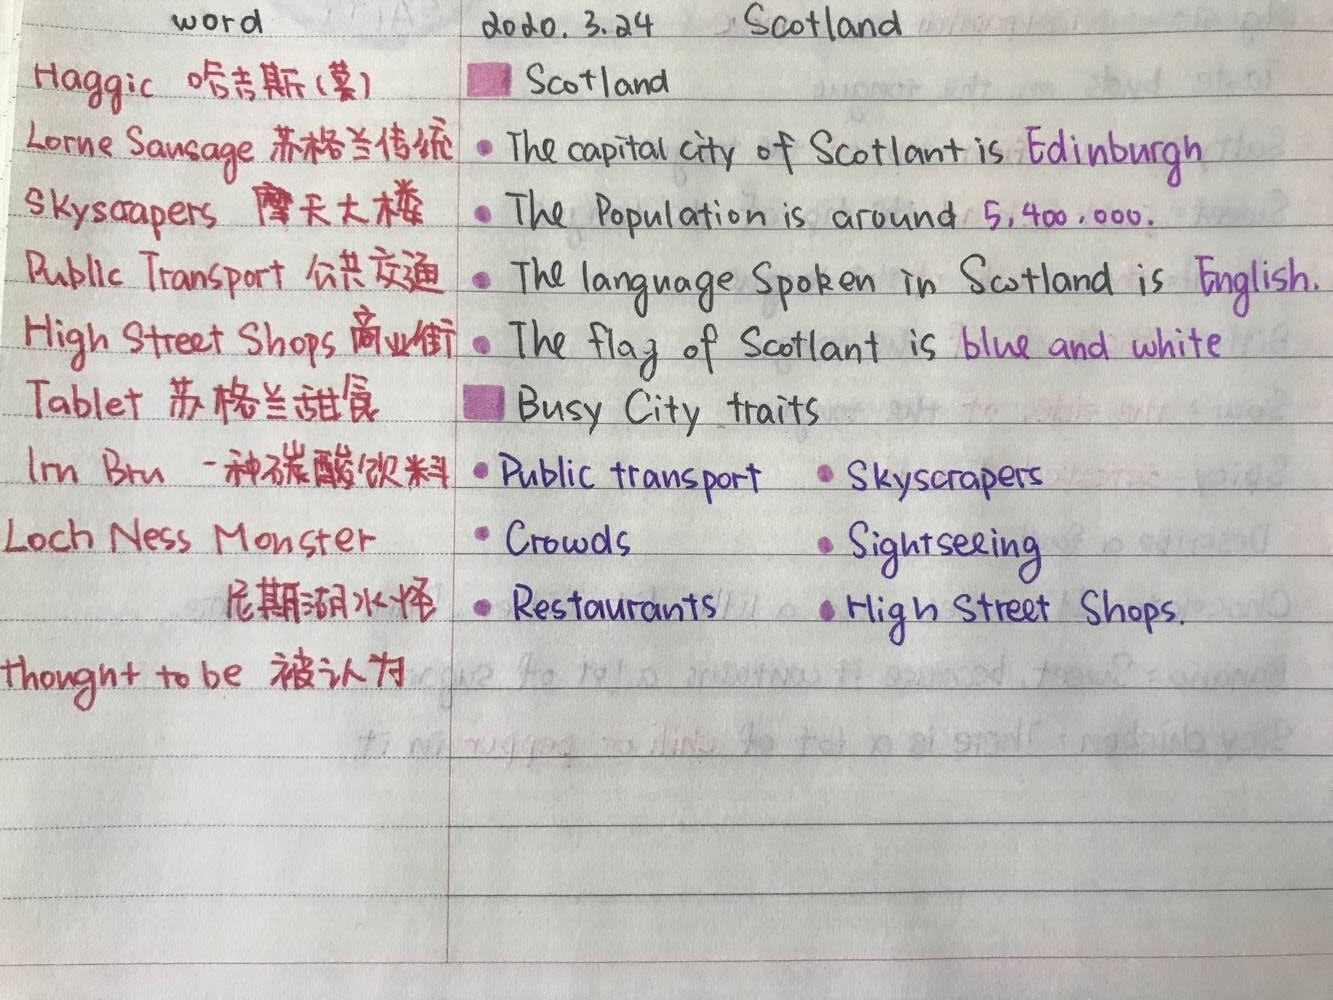 word
Haggic 哈吉斯(菜)
Lorne Sausage 苏格兰传统
Skyscrapers 摩天大楼
Public Transport 公共交通
High Street Shops 商业街
Tablet 苏格兰甜食
Irn Bru 一种碳酸饮料
Loch Ness Monster
尼斯湖水怪
thought to be 被认为
2020.3.24 Scotland
Scotland
• The capital city of Scotlant is Edinburgh
• The Population is around 5,400.000.
• The language Spoken in Scotland is English.
• The flag of Scotlant is blue and white
Busy City traits
• Public transport • Skyscrapers
• Crowds • Sightseeing
• Restaurants • High Street Shops.